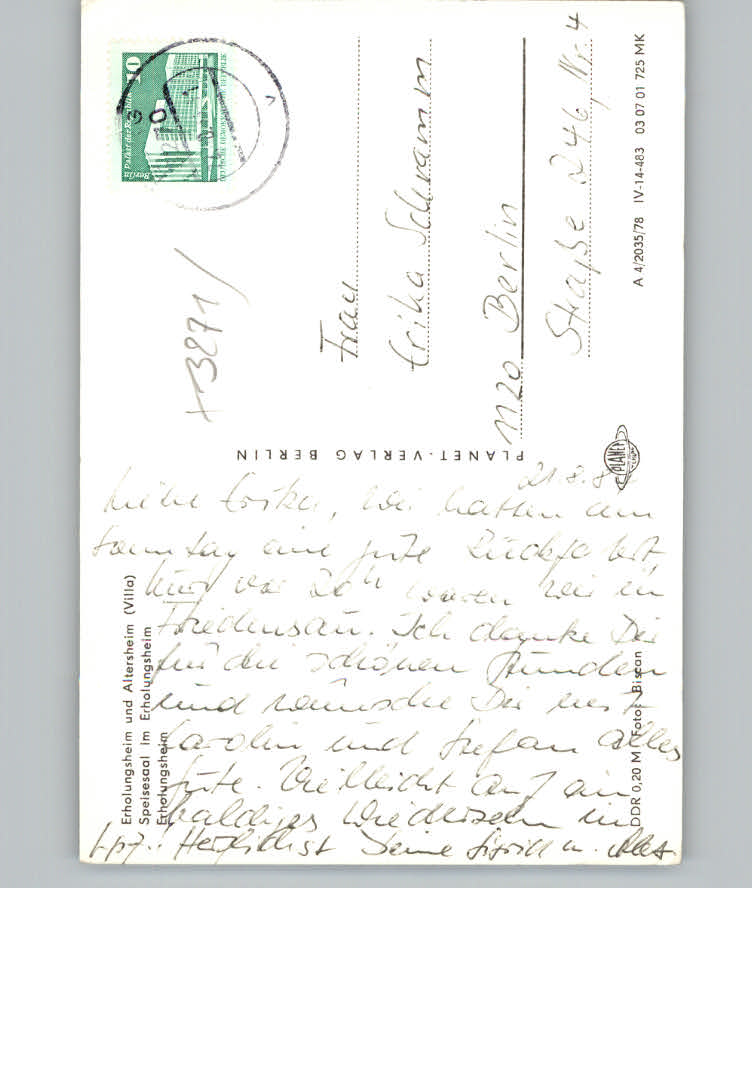 10
Palast der Republik
Berlin
3271
Frau
Erika Schramm
1120 Berlin
Straße 246, Nr. 4
A 4/2035/78 IV-14-483 03 07 01 725 MK
PLANET-VERLAG BERLIN
PLANET
21.8.
Liebe Erika, wir hatten am
Sonntag eine gute Rückfahrt
kurz vor 20h waren wir in
Friedensau. Ich danke Dir
für die schönen Stunden
und wünsche Dir mit
Carolin und Stefan alles
Gute. Vielleicht auf ein
baldiges Wiedersehn in
Lpz.! Herzlichst Deine Sigrid u.
Erholungsheim und Altersheim (Villa)
Speisesaal im Erholungsheim
Erholungsheim
DDR 0,20 M Foto: Biscan